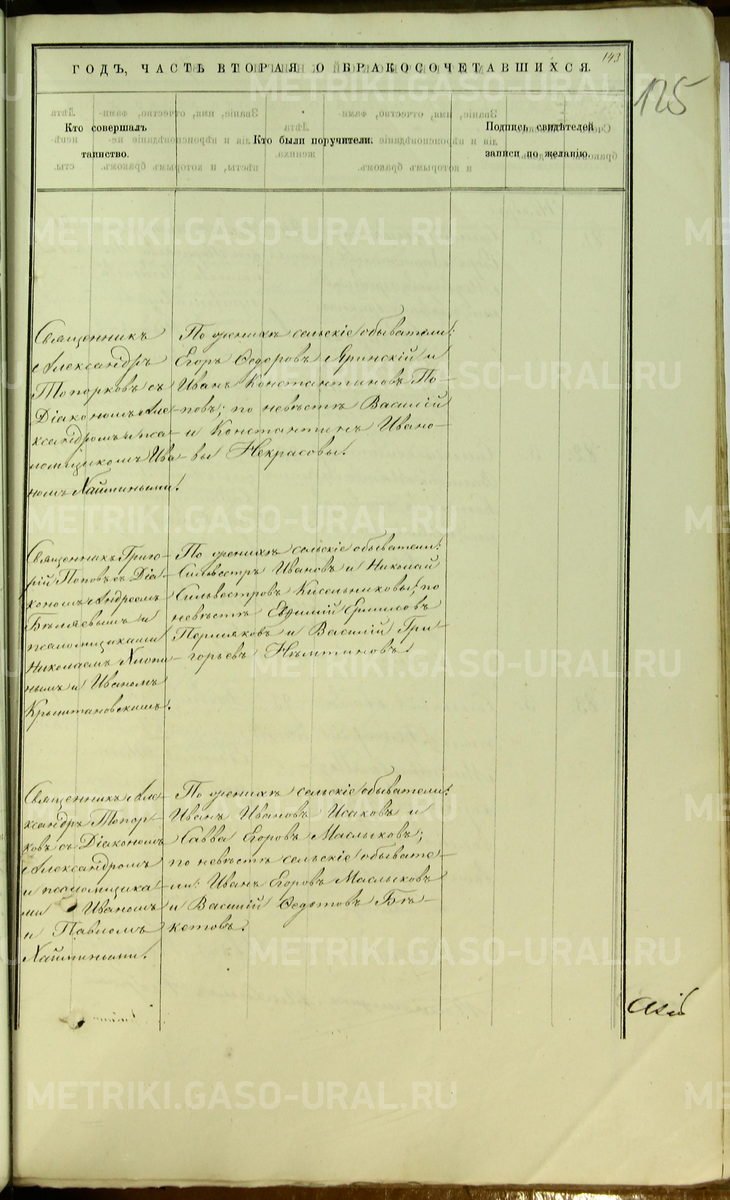 143
125
ГОДЪ, ЧАСТЬ ВТОРАЯ, О БРАКОСОЧЕТАВШИХСЯ.
Кто совершалъ
таинство.
Кто были поручители.
Подпись свидѣтелей
записи по желанію.
Священникъ
Александръ
Топорковъ съ
Діакономъ Але-
ксандромъ и пса-
ломщикомъ Ива-
номъ
По женихѣ сельскіе обыватели:
Егоръ Ѳедоровъ Яринскій и
Иванъ Константиновъ По-
повъ; по невѣстѣ Василій
и Константинъ Ивано-
вы Некрасовы.
Священникъ Григо-
рій Поповъ съ Діа-
кономъ Андреемъ
Бѣляевымъ и
псаломщиками
Николаемъ
нымъ и Иваномъ
По женихѣ сельскіе обыватели:
Сильвестръ Ивановъ и Николай
Сильвестровъ Кисельниковы; по
невѣстѣ Евѳимій Ермиловъ
Пермяковъ и Василій Гри-
горьевъ
Священникъ Але-
ксандръ Топор-
ковъ съ Діакономъ
Александромъ
и псаломщика-
ми Иваномъ
и Павломъ
По женихѣ сельскіе обыватели:
Иванъ Ивановъ Исаковъ и
Савва Егоровъ Маслыковъ;
по невѣстѣ сельскіе обывате-
ли: Иванъ Егоровъ Маслыковъ
и Василій Ѳедотовъ Бѣ-
кетовъ.
METRIKI.GASO-URAL.RU